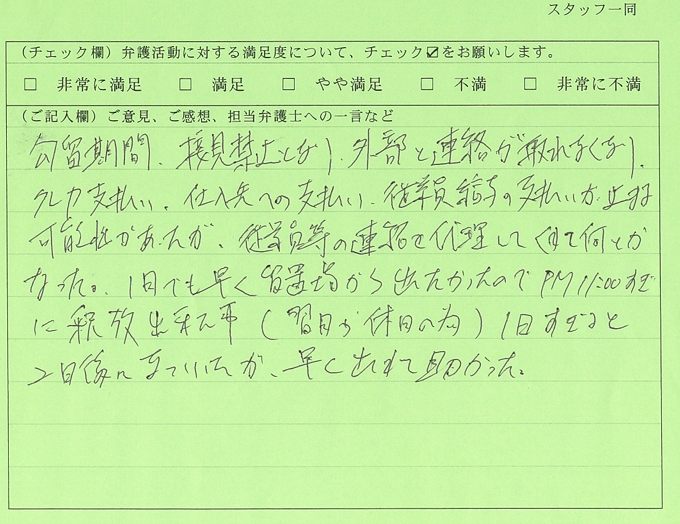 スタッフ一同
(チェック欄) 弁護活動に対する満足度について、チェック☑をお願いします。
□ 非常に満足 □ 満足 □ やや満足 □ 不満 □ 非常に不満
(ご記入欄) ご意見、ご感想、担当弁護士への一言など
勾留期間、接見禁止となり、外部と連絡が取れなくなり、
クレカ支払い、仕入先への支払い、従業員給与の支払いが止まる
可能性があったが、従業員等の連絡を代理してくれて何とか
なった。1日でも早く留置場から出たかったのでPM11:00すぎ
に釈放出来た事(翌日が休日の為)1日すぎると
2日後になっていたが、早く出れて助かった。